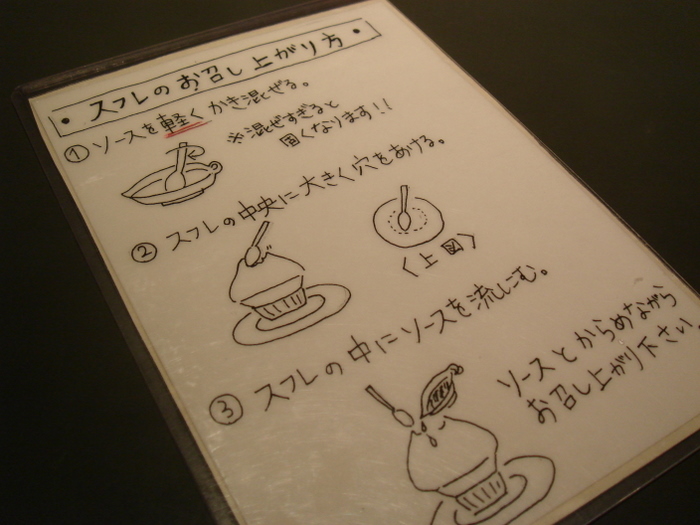 ・スフレのお召し上がり方・
① ソースを軽くかき混ぜる。
※混ぜすぎると
固くなります!!
② スフレの中央に大きく穴をあける。
〈上図〉
③ スフレの中にソースを流しこむ。
ソースとからめながら
お召し上がり下さい